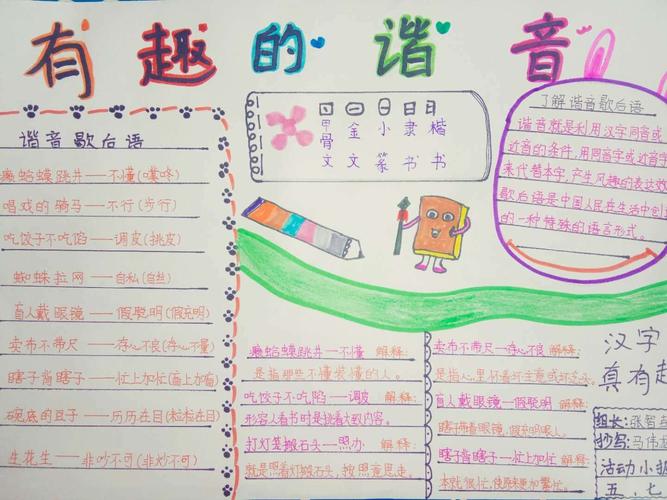 有趣的谐音
谐音歇后语
癞蛤蟆跳井——不懂(噗咚)
唱戏的骑马——不行(步行)
吃饺子不吃馅——调皮(挑皮)
蜘蛛拉网——自私(自丝)
盲人戴眼镜——假聪明(假充明)
卖布不带尺——存心不良(存心不量)
瞎子背瞎子——忙上加忙(盲上加盲)
碗底的豆子——历历在目(粒粒在目)
生花生——非吵不可(非炒不可)
甲骨文
金文
小篆
隶书
楷书
了解谐音歇后语
谐音就是利用汉字同音或
近音的条件,用同音字或近音字
来代替本字,产生风趣的表达效
歇后语是中国人民在生活中创
的一种特殊的语言形式。
癞蛤蟆跳井—不懂 解释:
是指那些不懂装懂的人。
吃饺子不吃馅—调皮 解释:
形容人看书时是挑着大致内容。
打灯笼搬石头—照办 解释:
就是照着灯搬石头,按照意思走。
卖布不带尺—存心不良 解释:
是指人,心里怀着坏主意或坏念头。
盲人戴眼镜—假聪明 解释:
瞎子背瞎子—忙上加忙 解释:
本就很忙,使原来更加繁忙。
汉字
真有趣
组长:张智
抄写:马伟
活动小报
五、七